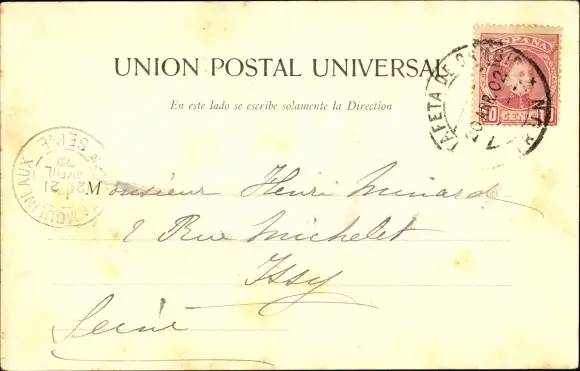 ESPAÑA
10 CENT
20 ABR 02
IRUN
UNION POSTAL UNIVERSAL
En este lado se escribe solamente la Direction
MOULINEAUX
SEINE
21
AVRIL
02
Monsieur Henri Minard
2 Rue Michelet
Issy
Seine